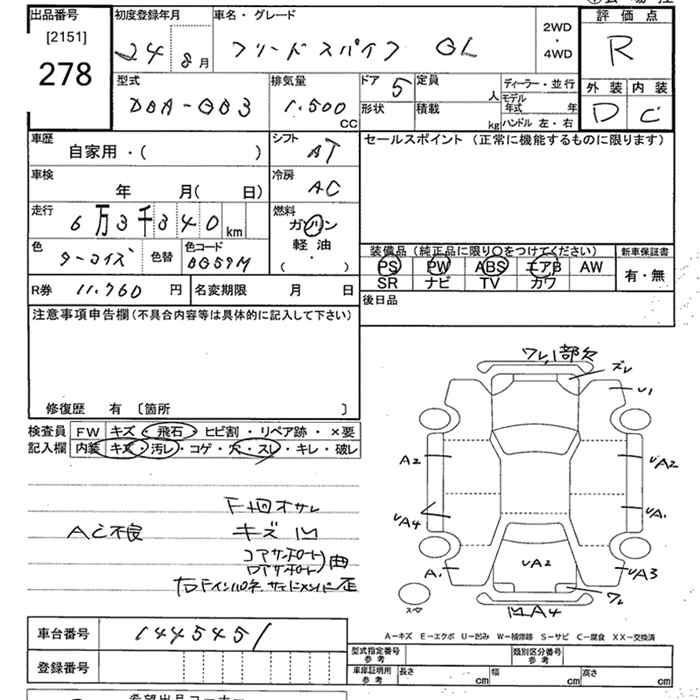 出品番号
[2151]
278
初度登録年月
24 8月
車名・グレード
フリードスパイク GL
2WD
・
4WD
評価点
R
外装 内装
D C
型式
DBA-GB3
排気量
1.500
CC
ドア 5
定員
人
形状
積載
kg
ディーラー・並行
モデル年式 年
ハンドル 左・右
車歴
自家用・( )
シフト
AT
セールスポイント(正常に機能するものに限ります)
車検
年 月( 日)
冷房
AC
走行
6万3千340km
燃料
ガソリン
軽油
( ・ )
色
ターコイズ
色替
色コード
BG59M
装備品(純正品に限り○をつけてください)
PS PW ABS エアB AW
SR ナビ TV カワ
新車保証書
有・無
R券 11.760円
名変期限 月 日
後日品
注意事項申告欄(不具合内容等は具体的に記入して下さい)
修復歴 有 〔箇所 〕
検査員
記入欄
FW キズ・飛石・ヒビ割・リペア跡・×要
内装 キズ・汚レ・コゲ・穴・スレ・キレ・破レ
AC不良
キズ 凹
コアサポート
ロアサポート
曲
右Fインパネ、サイドメンバー歪
ワレ、1部欠
ズレ
U1
A2
UA2
UA4
UA1
A1
UA3
UA2
ワレ
凹A4
スペア
A-キズ E-エクボ U-凹み W-補修跡 S-サビ C-腐食 XX-交換済
車台番号
1445451
登録番号
型式指定番号
参考
類別区分番号
参考
車庫証明用
参考
長さ cm
幅 cm
高さ cm
希望出品コーナー